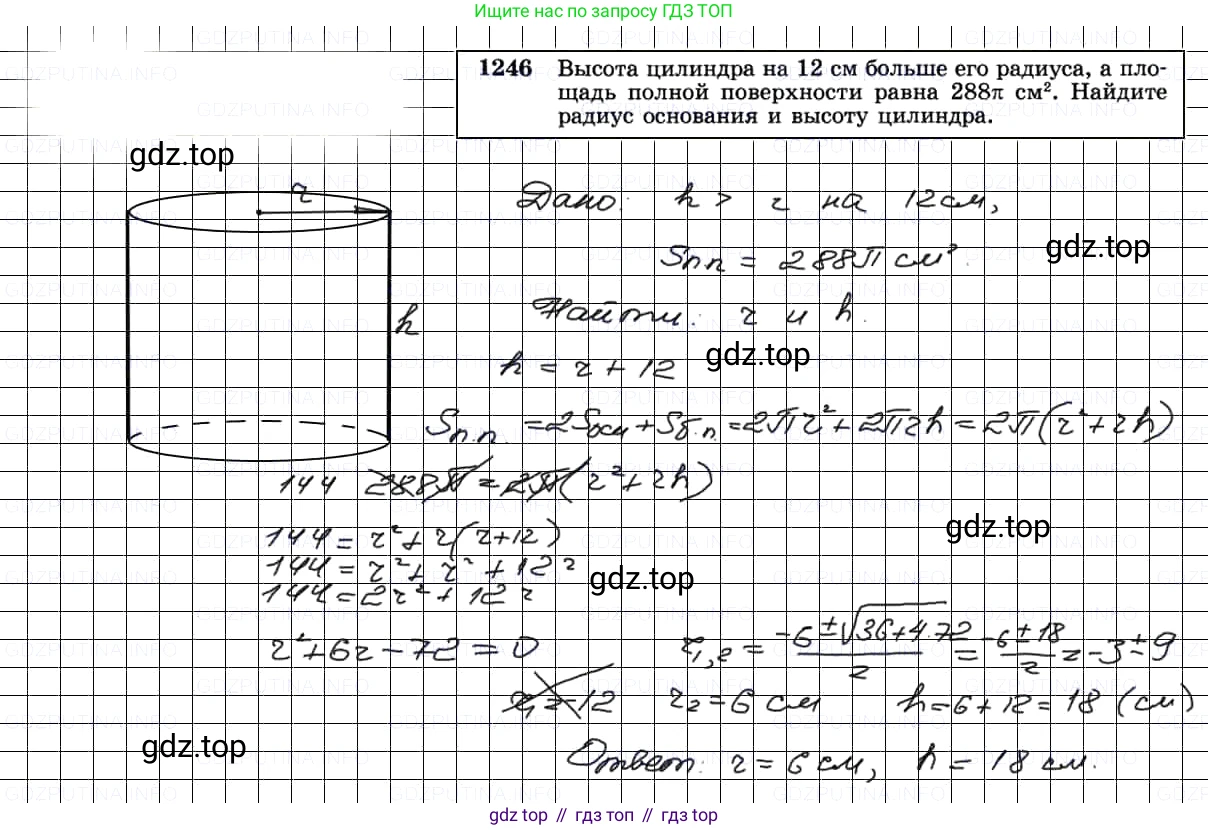 Ищите нас по запросу ГДЗ ТОП
1246 Высота цилиндра на 12 см больше его радиуса, а пло-
щадь полной поверхности равна 288π см². Найдите
радиус основания и высоту цилиндра.
gdz.top
r
Дано: h > r на 12 см,
Sп.п = 288π см².
gdz.top
h
Найти: r и h.
gdz.top
h = r + 12
Sп.п. = 2Sосн + Sб.п. = 2πr² + 2πrh = 2π(r² + rh)
144 288π = 2π(r² + rh)
144 = r² + r(r+12)
gdz.top
144 = r² + r² + 12r
gdz.top
144 = 2r² + 12r
r² + 6r - 72 = 0 r₁,₂ = (-6 ± √(36+4·72))/2 = (-6 ± 18)/2 = -3 ± 9
r₁ = -12 r₂ = 6 см h = 6 + 12 = 18 (см)
gdz.top
Ответ: r = 6 см, h = 18 см.
gdz.top // гдз.топ // gdz.top
GDZPUTINA.INFO